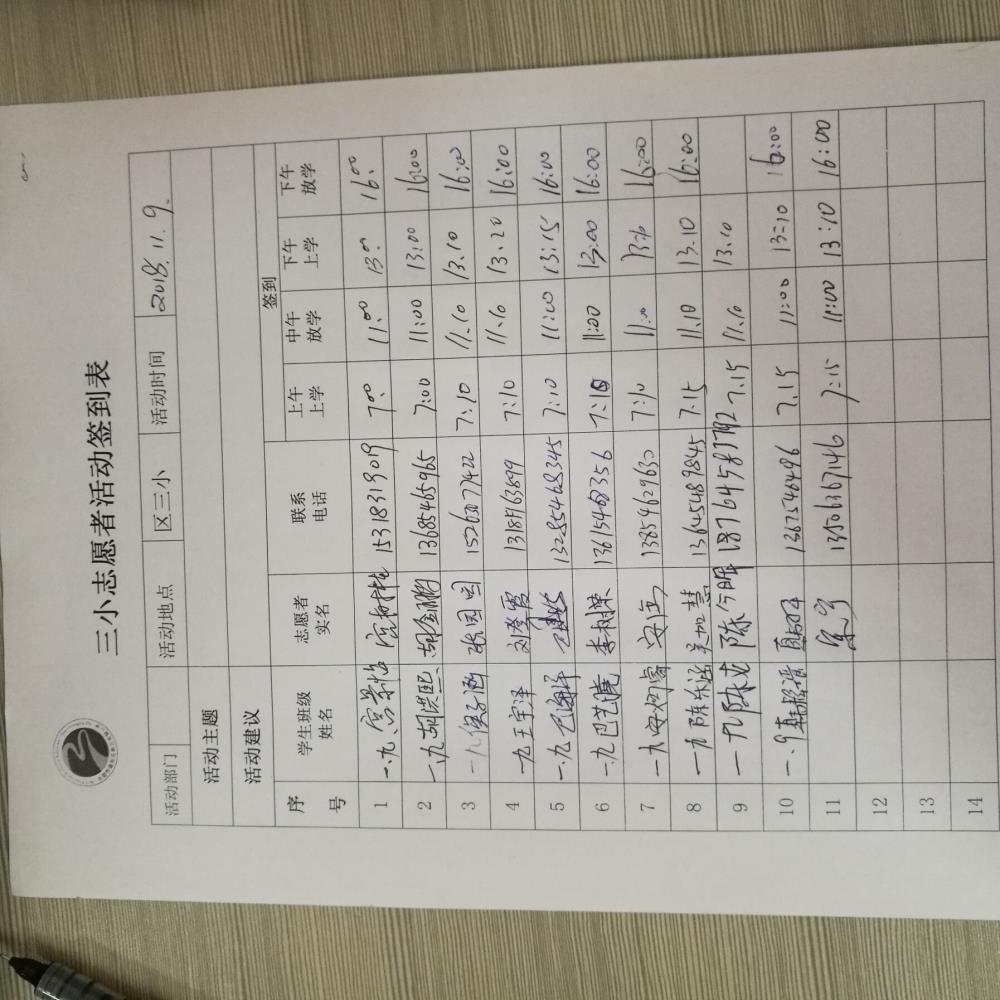 三小志愿者活动签到表
活动部门 活动地点 区三小 活动时间 2018.11.9.
活动主题
活动建议
签到
序号 学生班级姓名 志愿者实名 联系电话 上午上学 中午放学 下午上学 下午放学
1 一.九. 15318319019 7:00 11:00 13:00 16:00
2 一.九胡洪熙 胡金鹏 13685465965 7:00 11:00 13:00 16:00
3 一.九 张园园 15263077422 7:10 11.10 13.10 16:00
4 一九王宇泽 刘登霞 7:10 11.10 13.20 16:00
5 一.九 13285468345 7:10 11:00 13:15 16:00
6 一.九 巴艺 李树荣 13615468356 7:10 11:00 13:00 16:00
7 一九 13854629630 7:10 11:00 16:00
8 一九陈东 吴如慧 13645489845 7.15 11.10 13.10 16:00
9 一九陈龙 陈今明 18764587792 7.15 11.10 13.10
10 一.9 13675408496 7.15 11:00 13:10 16:00
11 13506367146 7:15 11:00 13:10 16:00
12
13
14